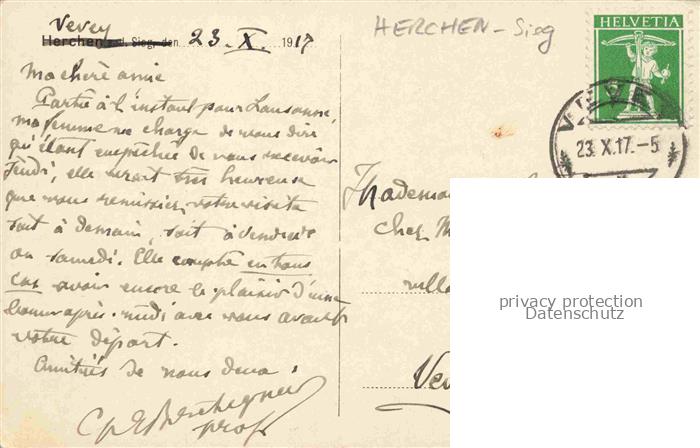 Vevey
Herchen a. d. Sieg, den 23. X. 1917
HERCHEN - Sieg
HELVETIA
VEVEY
23. X. 17. - 5
Ma chère amie
Partie à l'instant pour Lausanne,
ma femme me charge de vous dire
qu'étant empêchée de vous recevoir
Jeudi, elle serait très heureuse
que vous remissiez votre visite
soit à demain, soit à vendredi
ou samedi. Elle compte en tous
cas avoir encore le plaisir d'une
bonne après-midi avec vous avant
votre départ.
Amitiés de nous deux
prof.
Mademoi
chez M
villa
Vev
privacy protection
Datenschutz